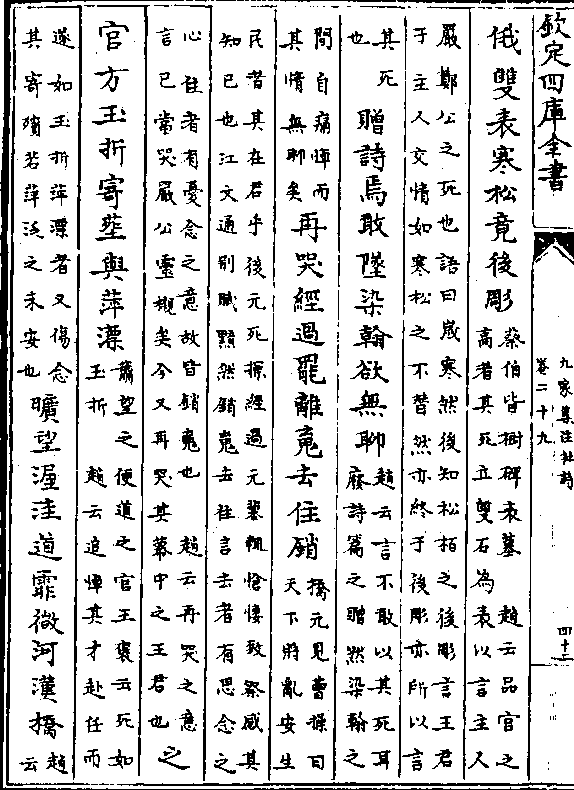 欽定四庫全書
九家集注杜詩
卷二十九
四十二
俄雙表寒松竟後彫
蔡伯喈樹碑表墓 趙云品官之
高者其死立雙石為表以言主人
嚴鄭公之死也語曰歲寒然後知松栢之後彫言王君
于主人交情如寒松之不替然亦終于後彫亦所以言
其死
也
贈詩焉敢墜染翰欲無聊
趙云言不敢以其死耳
廢詩篇之贈然染翰之
間自痛悼而
其情無聊矣
再哭經過罷離䰟去住銷
橋元見曹操曰
天下將亂安生
民者其在君乎後元死操經過元墓輒愴悽致祭感其
知已也江文通別賦黯然銷䰟去往言去者有思念之
心住者有憂念之意故皆銷䰟也 趙云再哭之意
言已常哭嚴公靈櫬矣今又再哭其幕中之王君也
之
官方玉折寄塟與萍漂
蕭望之便道之官王褒云死如
玉折 趙云追惲其才赴任而
遂如玉折萍漂者又傷念
其寄殯若萍泛之未安也
曠望渥洼道霏微河漢橋
趙
云